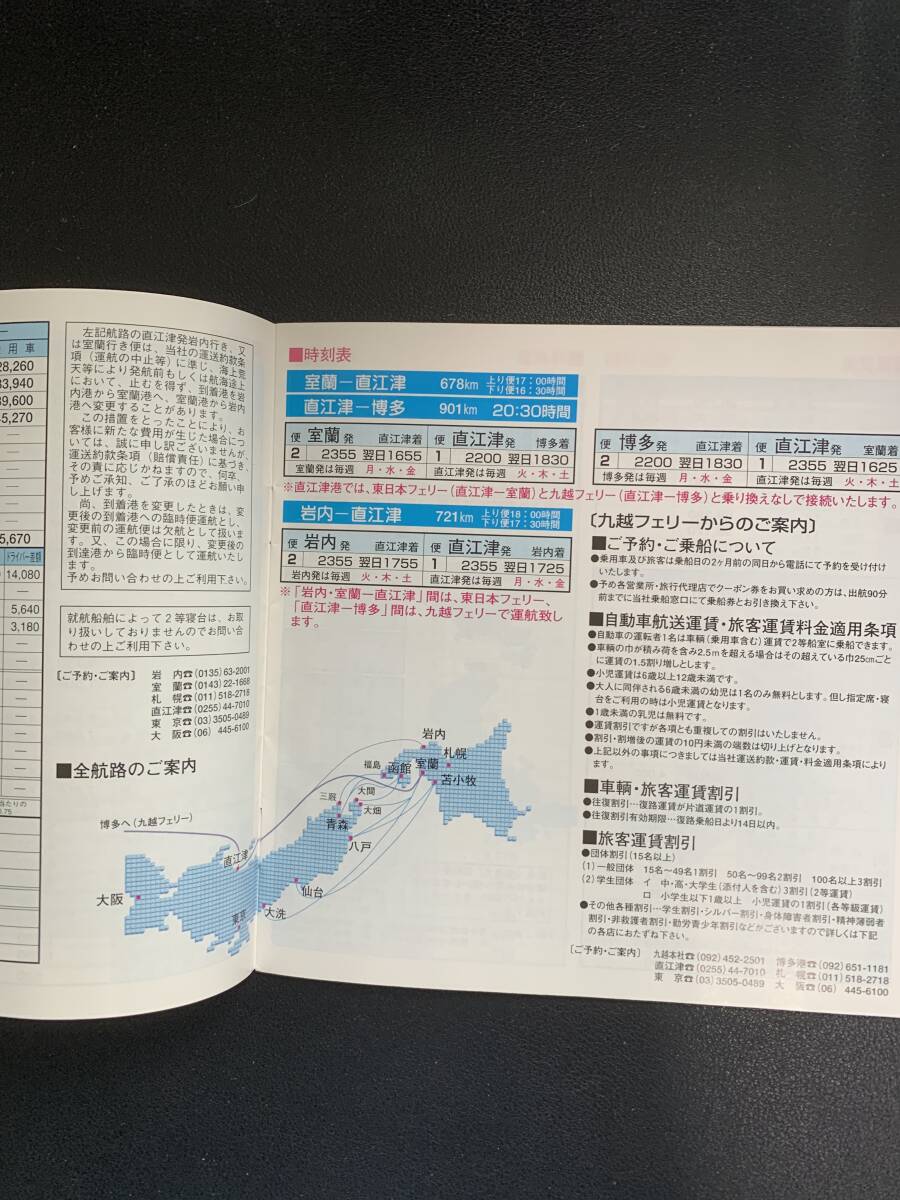 用車
28,260
33,940
39,600
45,270
5,670
ドライバー差額
14,080
5,640
3,180
当たりの
左記航路の直江津発岩内行き、又
は室蘭行き便は、当社の運送約款条
項（運航の中止等）に準じ、海上荒
天等により発航前もしくは航海途上
において、止むを得ず、到着港を岩
内港から室蘭港へ、室蘭港から岩内
港へ変更することがあります。
この措置をとったことにより、お
客様に新たな費用が生じた場合につ
いては、誠に申し訳ございませんが、
運送約款条項（賠償責任）に基づき、
その責に応じかねますので、何卒、
予めご承知、ご了承のほどお願い申
し上げます。
尚、到着港を変更したときは、変
更後の到着港への臨時便運航とし、
変更前の運航便は欠航として扱いま
す。又、この場合に限り、変更後の
到達港から臨時便として運航いたし
ます。
予めお問い合わせの上ご利用下さい。
就航船舶によって2等寝台は、お取
り扱いしておりませんのでお問い合
わせの上ご利用下さい。
〔ご予約・ご案内〕 岩 内☎(0135)63-2001
室 蘭☎(0143)22-1668
札 幌☎(011)518-2718
直江津☎(0255)44-7010
東 京☎(03)3505-0489
大 阪☎(06) 445-6100
■全航路のご案内
博多へ（九越フェリー）
直江津
大阪
東京
■時刻表
室蘭ー直江津 678km 上り便17：00時間 下り便16：30時間
直江津ー博多 901km 20:30時間
便 室蘭発 直江津着 便 直江津発 博多着
2 2355 翌日1655 1 2200 翌日1830
室蘭発は毎週 月・水・金 直江津発は毎週 火・木・土
便 博多発 直江津着 便 直江津発 室蘭着
2 2200 翌日1830 1 2355 翌日1625
博多発は毎週 月・水・金 直江津発は毎週 火・木・土
※直江津港では、東日本フェリー（直江津ー室蘭）と九越フェリー（直江津ー博多）と乗り換えなしで接続いたします。
岩内ー直江津 721km 上り便18：00時間 下り便17：30時間
便 岩内発 直江津着 便 直江津発 岩内着
2 2355 翌日1755 1 2355 翌日1725
岩内発は毎週 火・木・土 直江津発は毎週 月・水・金
※「岩内・室蘭ー直江津」間は、東日本フェリー、
「直江津ー博多」間は、九越フェリーで運航致し
ます。
岩内
札幌
福島
函館
室蘭
苫小牧
三厩
大間
大畑
青森
八戸
仙台
大洗
〔九越フェリーからのご案内〕
■ご予約・ご乗船について
●乗用車及び旅客は乗船日の2ヶ月前の同日から電話にて予約を受け付け
いたします。
●予め各営業所・旅行代理店でクーポン券をお買い求めの方は、出航90分
前までに当社乗船窓口にて乗船券とお引き換え下さい。
■自動車航送運賃・旅客運賃料金適用条項
●自動車の運転者1名は車輌（乗用車含む）運賃で2等船室に乗船できます。
●車輌の巾が積み荷を含み2.5mを超える場合はその超えている巾25cmごと
に運賃の1.5割り増しとします。
●小児運賃は6歳以上12歳未満です。
●大人に同伴される6歳未満の幼児は1名のみ無料とします。但し指定席・寝
台をご利用の時は小児運賃となります。
●1歳未満の乳児は無料です。
●運賃割引ですが各項とも重複しての割引はいたしません。
●割引・割増後の運賃の10円未満の端数は切り上げとなります。
●上記以外の事項につきましては当社運送約款・運賃・料金適用条項により
ます。
■車輌・旅客運賃割引
●往復割引…復路運賃が片道運賃の1割引。
●往復割引有効期限…復路乗船日より14日以内。
■旅客運賃割引
●団体割引（15名以上）
(1)一般団体 15名〜49名1割引 50名〜99名2割引 100名以上3割引
(2)学生団体 イ 中・高・大学生（添付人を含む）3割引（2等運賃）
ロ 小学生以下1歳以上 小児運賃の1割引（各等級運賃）
●その他各種割引…学生割引・シルバー割引・身体障害者割引・精神薄弱者
割引・非救護者割引・勤労青少年割引などがございますので詳しくは下記
の各店におたずね下さい。
〔ご予約・ご案内〕 九越本社☎(092)452-2501 博多港☎(092)651-1181
直江津☎(0255)44-7010 札 幌☎(011)518-2718
東 京☎(03)3505-0489 大 阪☎(06) 445-6100